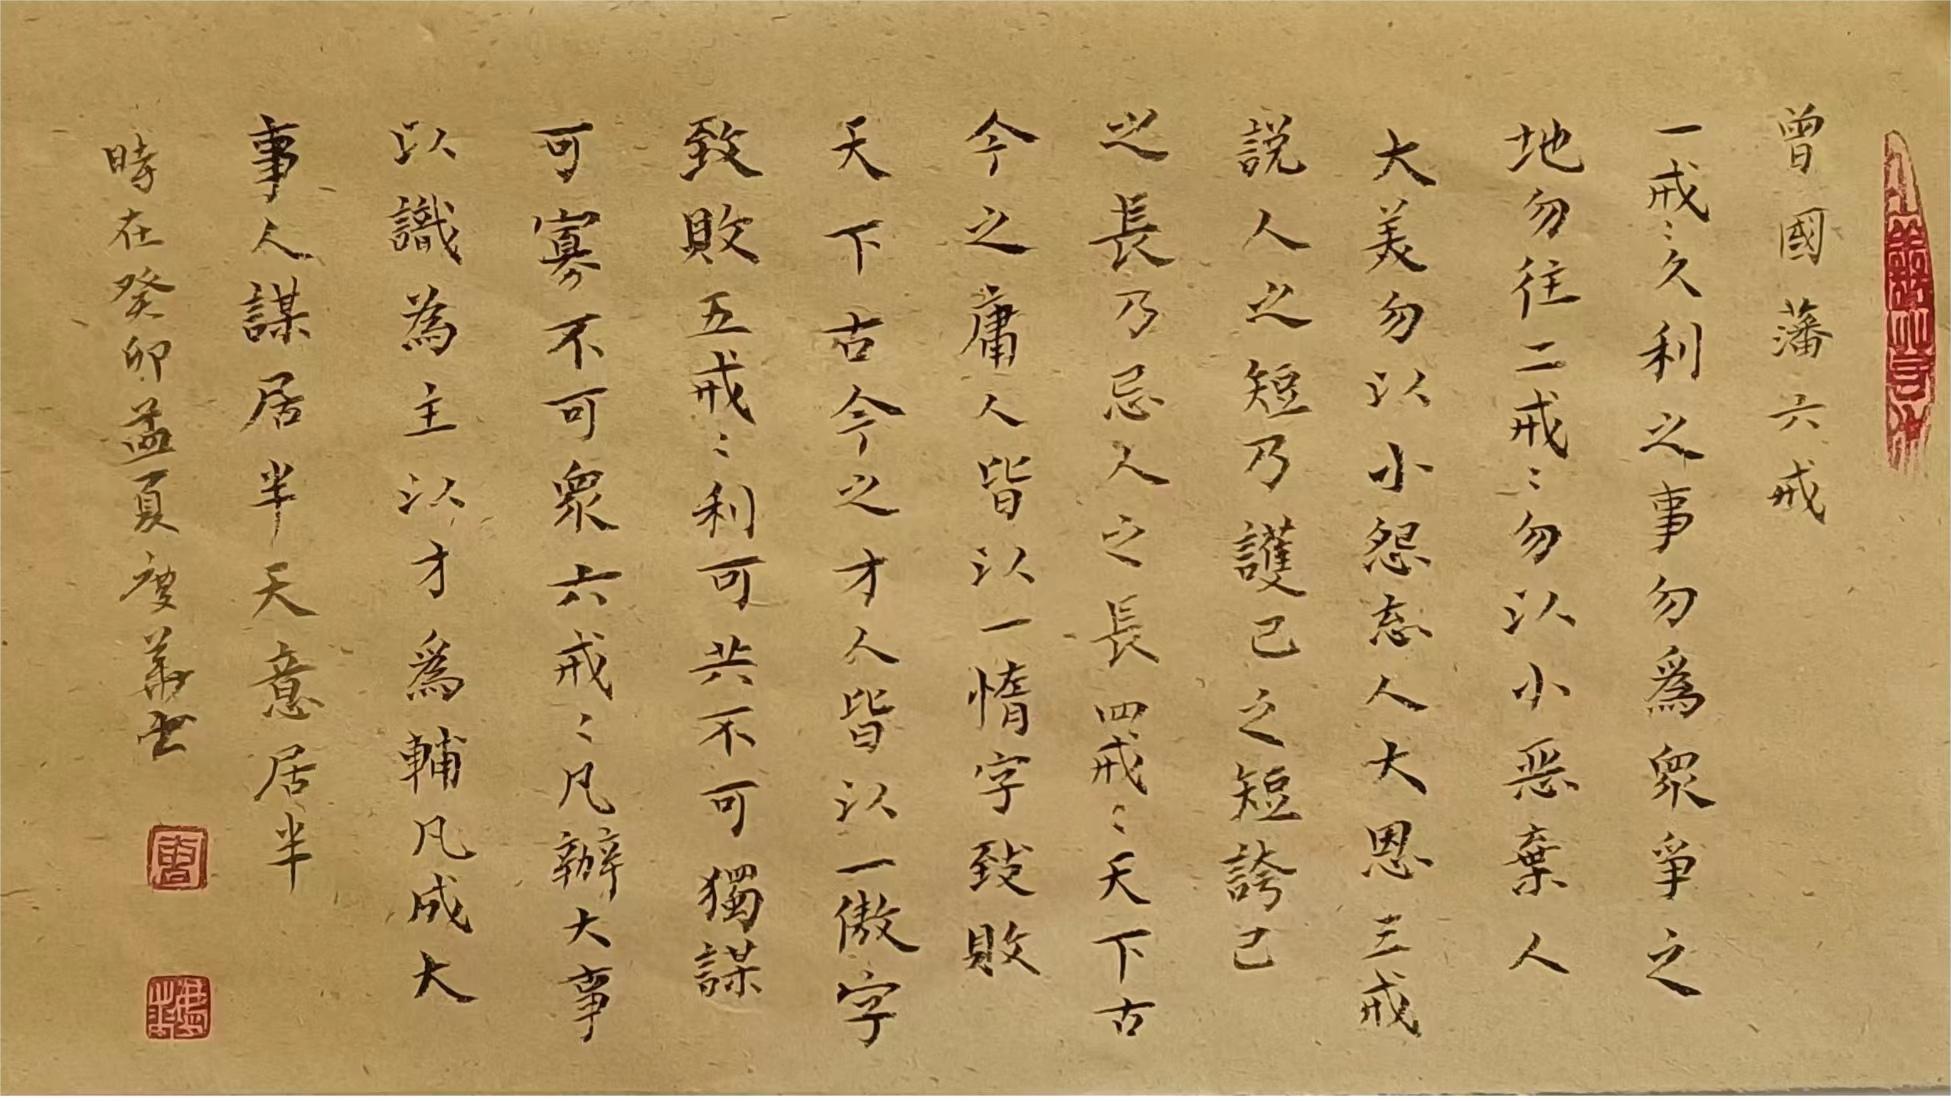 曾國藩六戒
一戒〻久利之事勿爲衆爭之
地勿往二戒〻勿以小惡棄人
大美勿以小怨忘人大恩三戒
説人之短乃護己之短誇己
之長乃忌人之長四戒〻天下古
今之庸人皆以一惰字致敗
天下古今之才人皆以一傲字
致敗五戒〻利可共不可獨謀
可寡不可衆六戒〻凡辦大事
以識為主以才爲輔凡成大
事人謀居半天意居半
時在癸卯孟夏慶華书